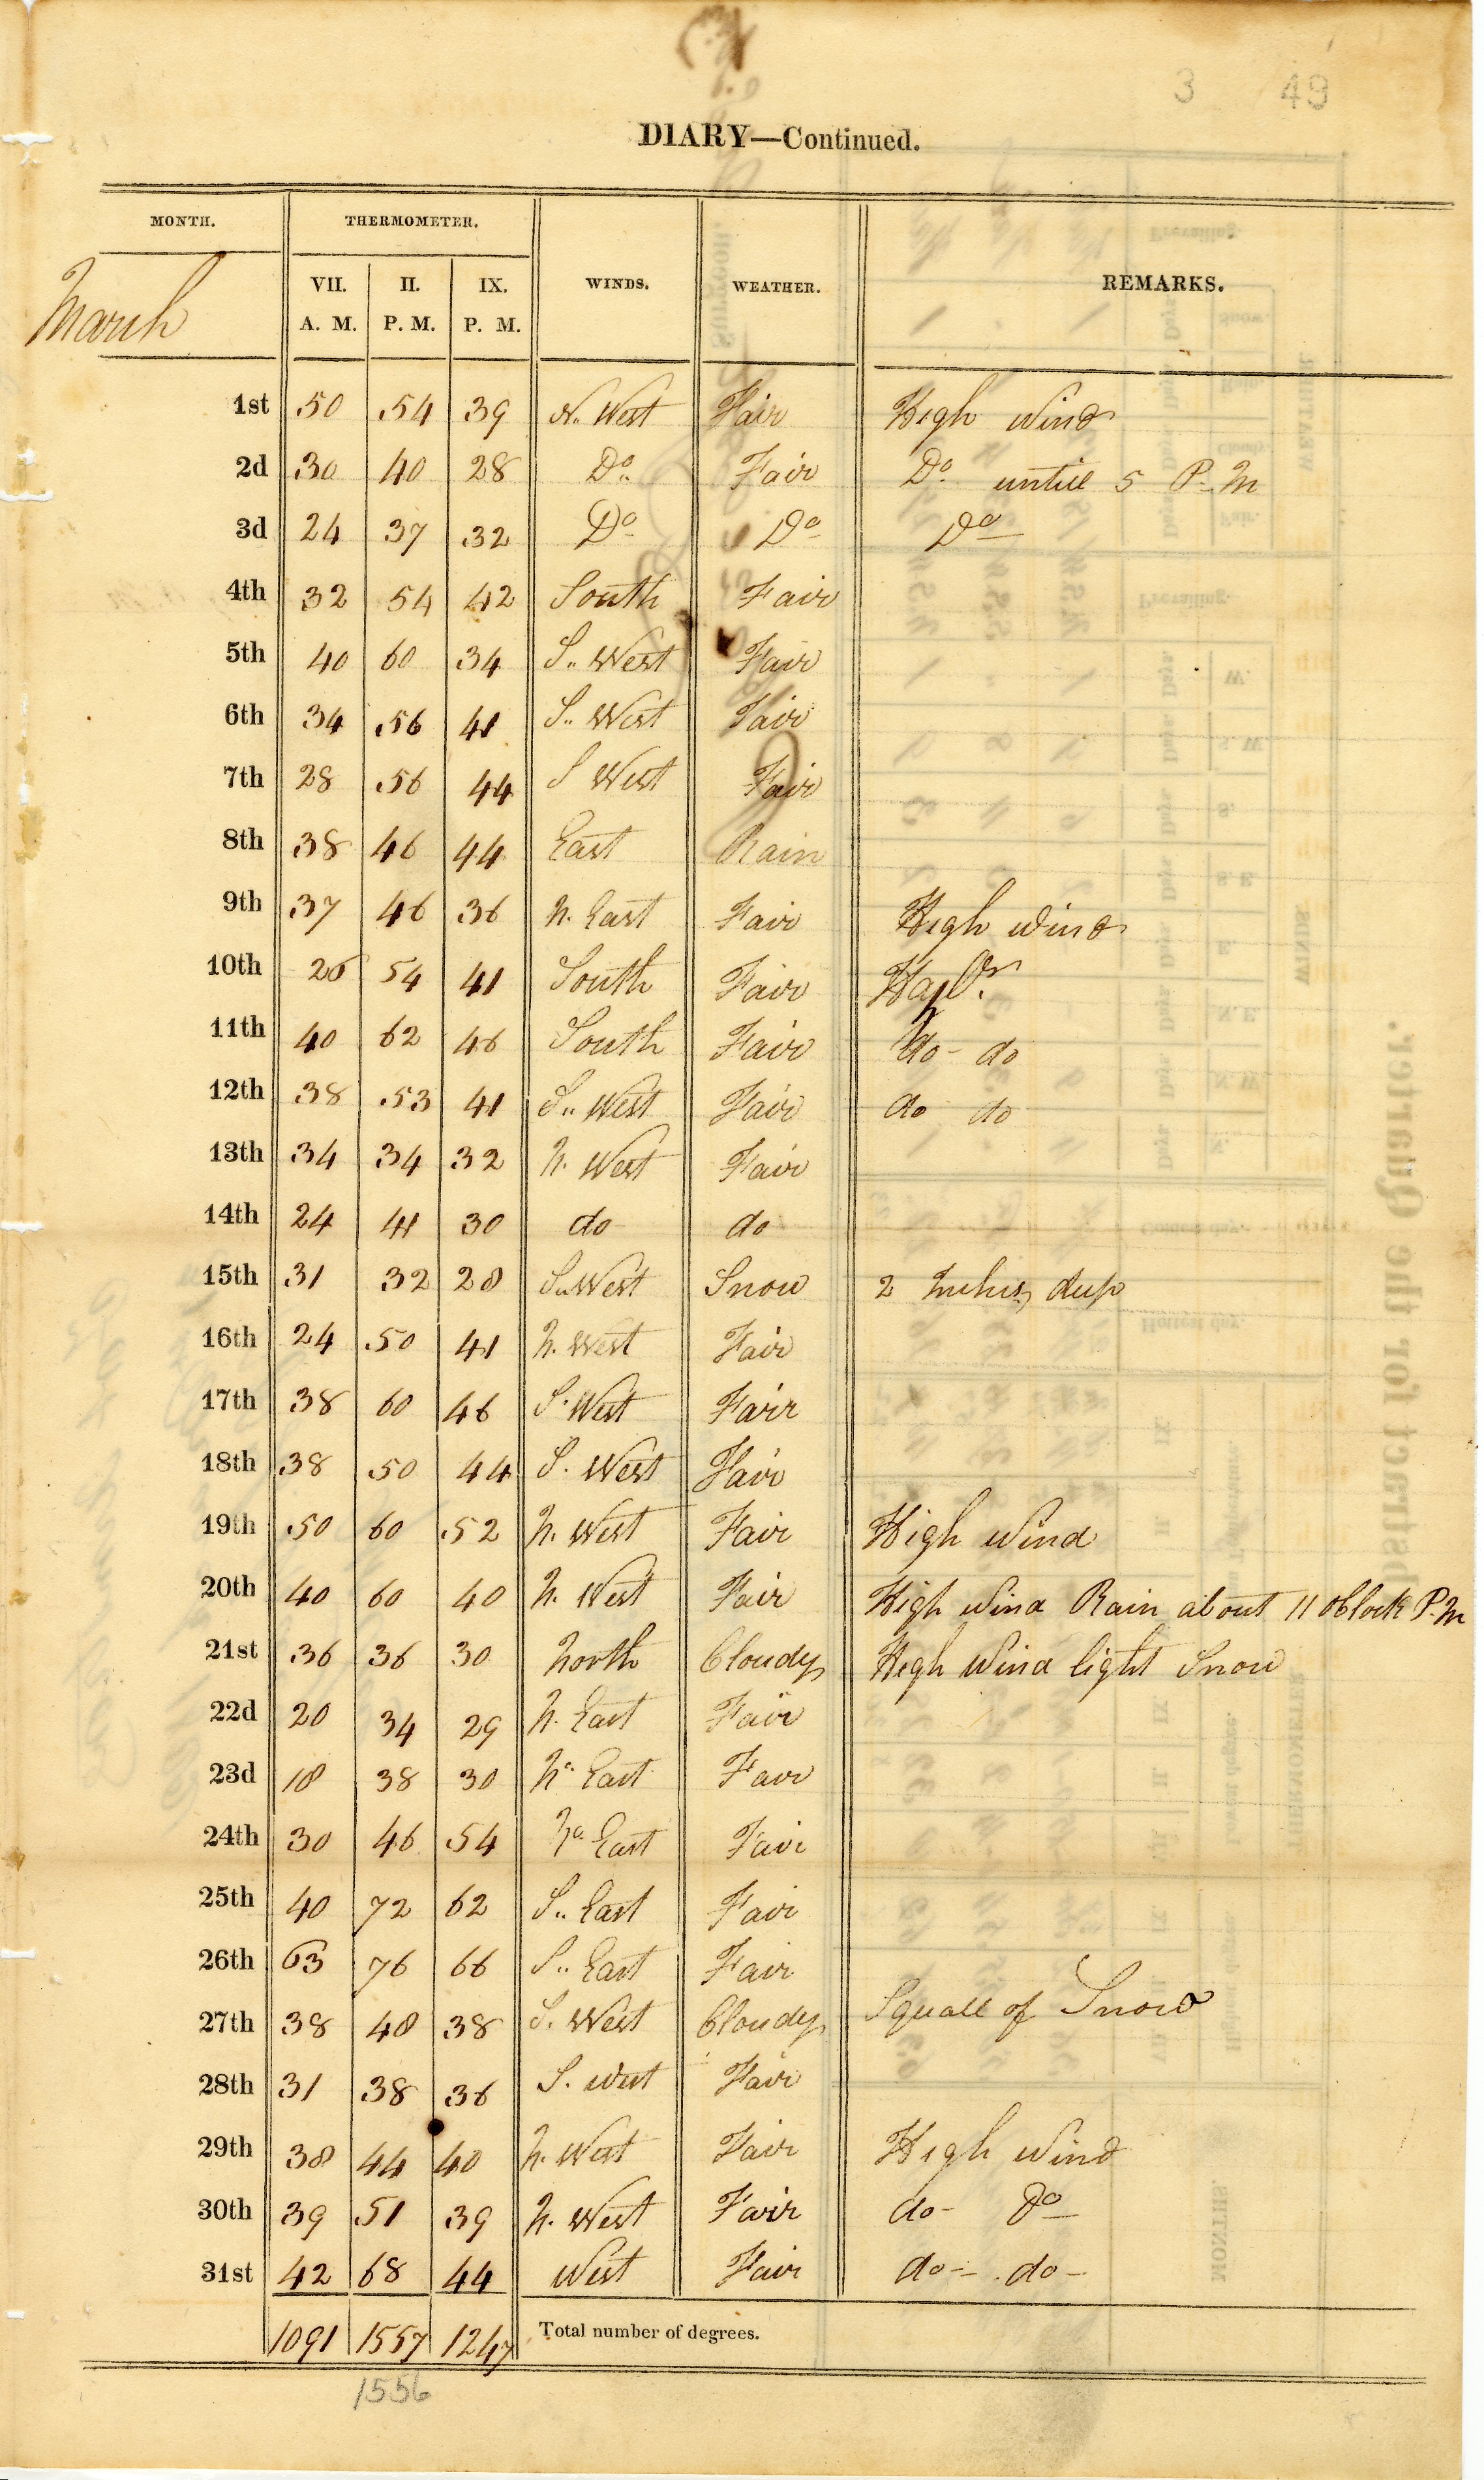 3 49
DIARY—Continued.
MONTH. THERMOMETER. WINDS. WEATHER. REMARKS.
March VII. A. M. II. P. M. IX. P. M.
1st 50 54 39 N. West Fair High Wind
2d 30 40 28 Do. Fair Do. untill 5 P. M
3d 24 37 32 Do Do Do
4th 32 54 42 South Fair
5th 40 60 34 S. West Fair
6th 34 56 41 S. West Fair
7th 28 56 44 S West Fair
8th 38 46 44 East Rain
9th 37 46 36 N. East Fair High Wind
10th 26 54 41 South Fair
11th 40 62 46 South Fair do - do
12th 38 53 41 S. West Fair do do
13th 34 34 32 N. West Fair
14th 24 41 30 do do
15th 31 32 28 S. West Snow 2 Inches deep
16th 24 50 41 N. West Fair
17th 38 60 46 S. West Fair
18th 38 50 44 S. West Fair
19th 50 60 52 N. West Fair High Wind
20th 40 60 40 N. West Fair High Wind Rain about 11 oClock P. M
21st 36 36 30 North Cloudy High Wind light Snow
22d 20 34 29 N. East Fair
23d 18 38 30 No East Fair
24th 30 46 54 No East Fair
25th 40 72 62 S. East Fair
26th 63 76 66 S. East Fair
27th 38 48 38 S. West Cloudy Squall of Snow
28th 31 38 36 S. West Fair
29th 38 44 40 N. West Fair High Wind
30th 39 51 39 N. West Fair do - Do
31st 42 68 44 West Fair do - do -
1091 1557 1247 Total number of degrees.
1556